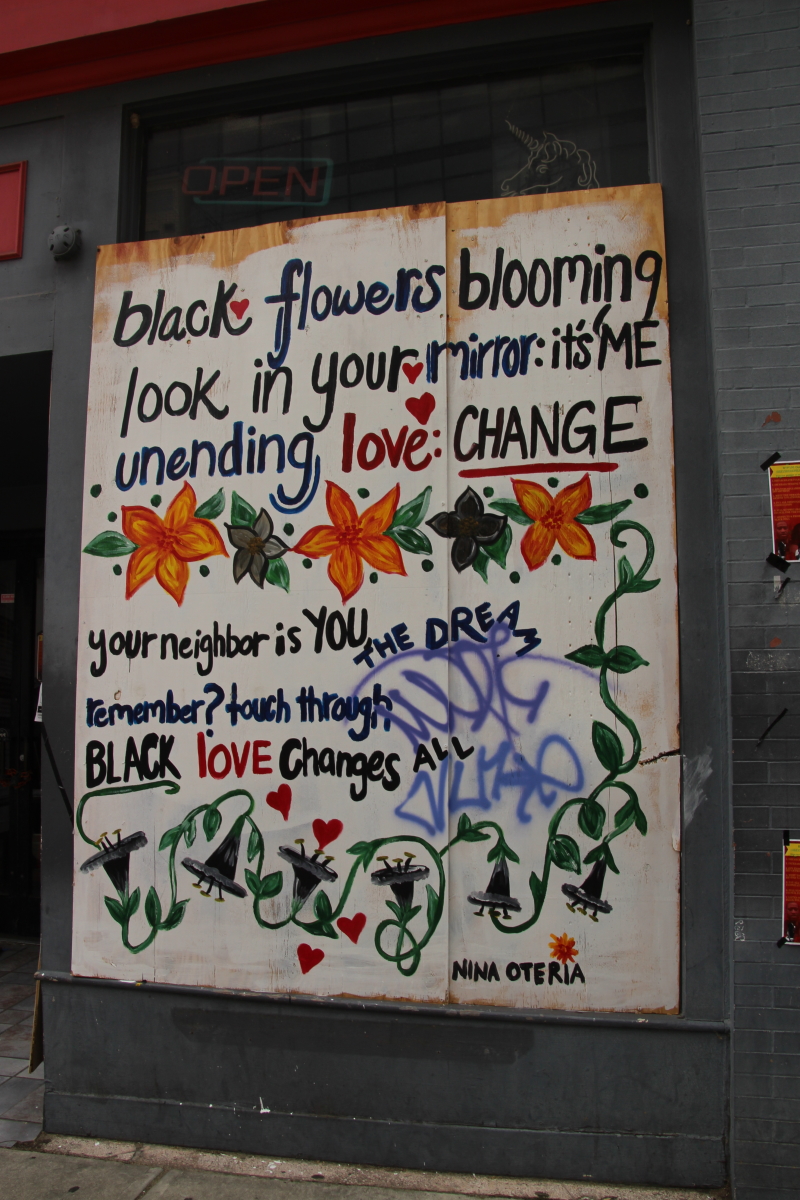 OPEN
black flowers blooming
look in your mirror: it's ME
unending love: CHANGE
your neighbor is YOU
THE DREAM
remember? touch through
BLACK LOVE Changes ALL
NINA OTERIA